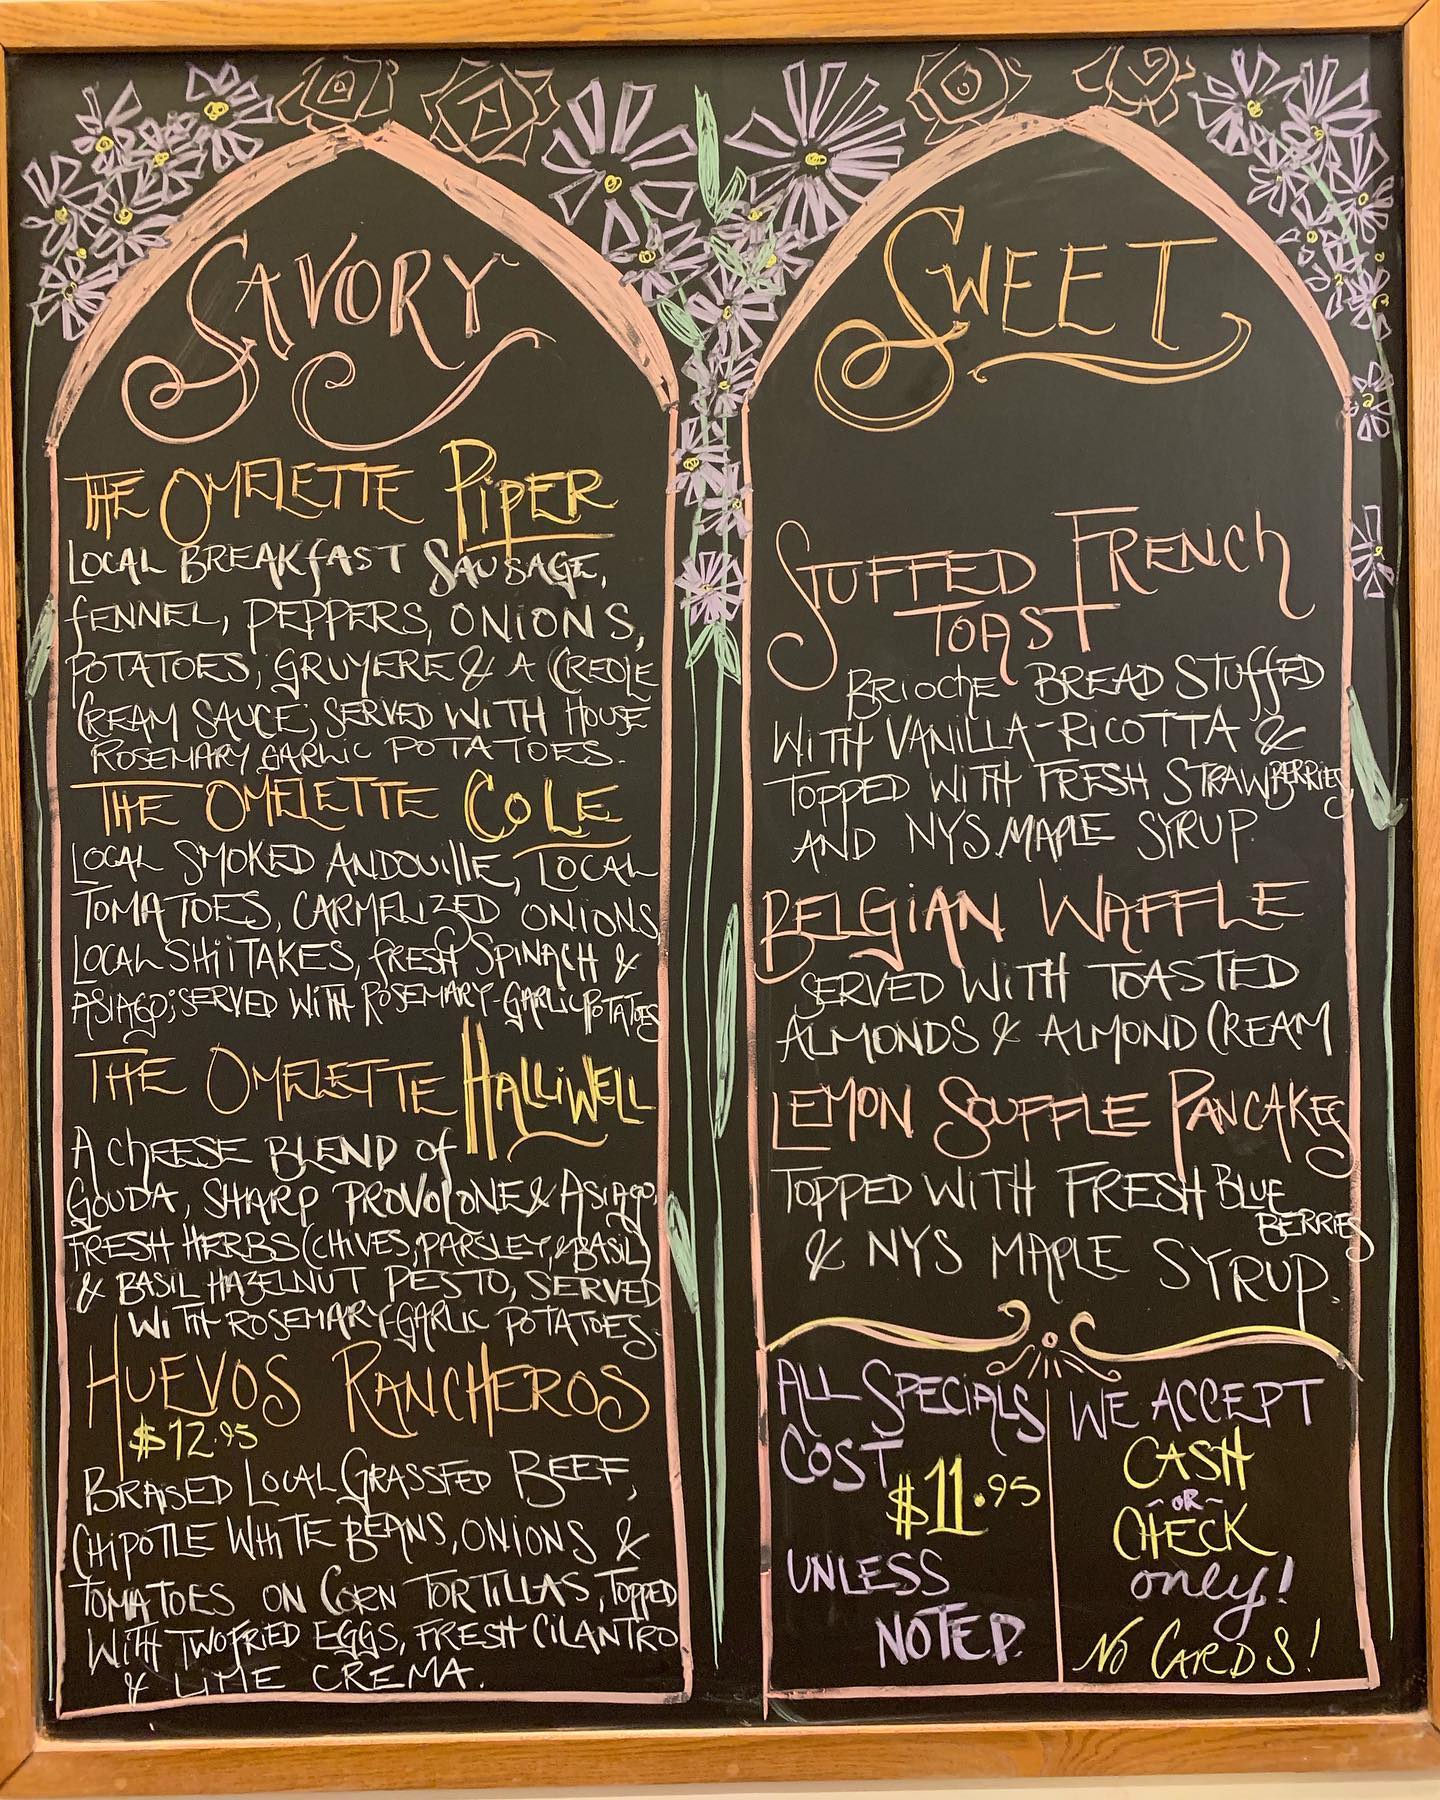 SAVORY
THE OMELETTE PIPER
LOCAL BREAKFAST SAUSAGE,
FENNEL, PEPPERS, ONIONS,
POTATOES, GRUYERE & A CREOLE
CREAM SAUCE; SERVED WITH HOUSE
ROSEMARY GARLIC POTATOES.
THE OMELETTE COLE
LOCAL SMOKED ANDOUILLE, LOCAL
TOMATOES, CARMELIZED ONIONS,
LOCAL SHIITAKES, FRESH SPINACH &
ASIAGO; SERVED WITH ROSEMARY-GARLIC POTATOES
THE OMELETTE HALLIWELL
A CHEESE BLEND OF
GOUDA, SHARP PROVOLONE & ASIAGO,
FRESH HERBS (CHIVES, PARSLEY, & BASIL)
& BASIL HAZELNUT PESTO, SERVED
WITH ROSEMARY-GARLIC POTATOES.
HUEVOS RANCHEROS
$12.95
BRAISED LOCAL GRASSFED BEEF,
CHIPOTLE WHITE BEANS, ONIONS &
TOMATOES ON CORN TORTILLAS, TOPPED
WITH TWO FRIED EGGS, FRESH CILANTRO
& LIME CREMA.
SWEET
STUFFED FRENCH
TOAST
BRIOCHE BREAD STUFFED
WITH VANILLA-RICOTTA &
TOPPED WITH FRESH STRAWBERRIES
AND NYS MAPLE SYRUP.
BELGIAN WAFFLE
SERVED WITH TOASTED
ALMONDS & ALMOND CREAM
LEMON SOUFFLE PANCAKES
TOPPED WITH FRESH BLUE
BERRIES
& NYS MAPLE SYRUP.
ALL SPECIALS
COST
$11.95
UNLESS
NOTED.
WE ACCEPT
CASH
~OR~
CHECK
only!
NO CARDS!